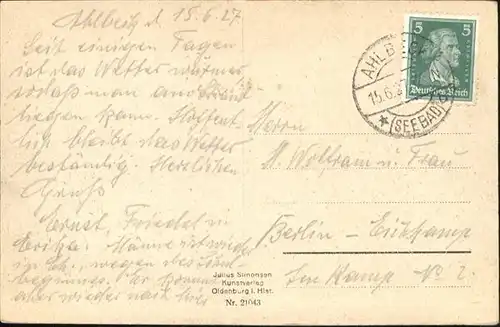 Ahlbeck d. 15.6.27
Seit einigen Tagen
ist das Wetter wärmer
sodaß man am Strand
liegen kann. Hoffent-
lich bleibt das Wetter
beständig. Herzlichen
Gruß
Ernst, Friedel u.
Erika. Männe ist wieder
in wegen des
aber wieder nach hier
5 5
Deutsches Reich
AHLB
15.6.2
(SEEBAD)
Herrn
M. Wolfram u. Frau
Berlin - Eichkamp
Im Kamp No 2.
Julius Simonsen
Kunstverlag
Oldenburg i. Hlst.
Nr. 21043